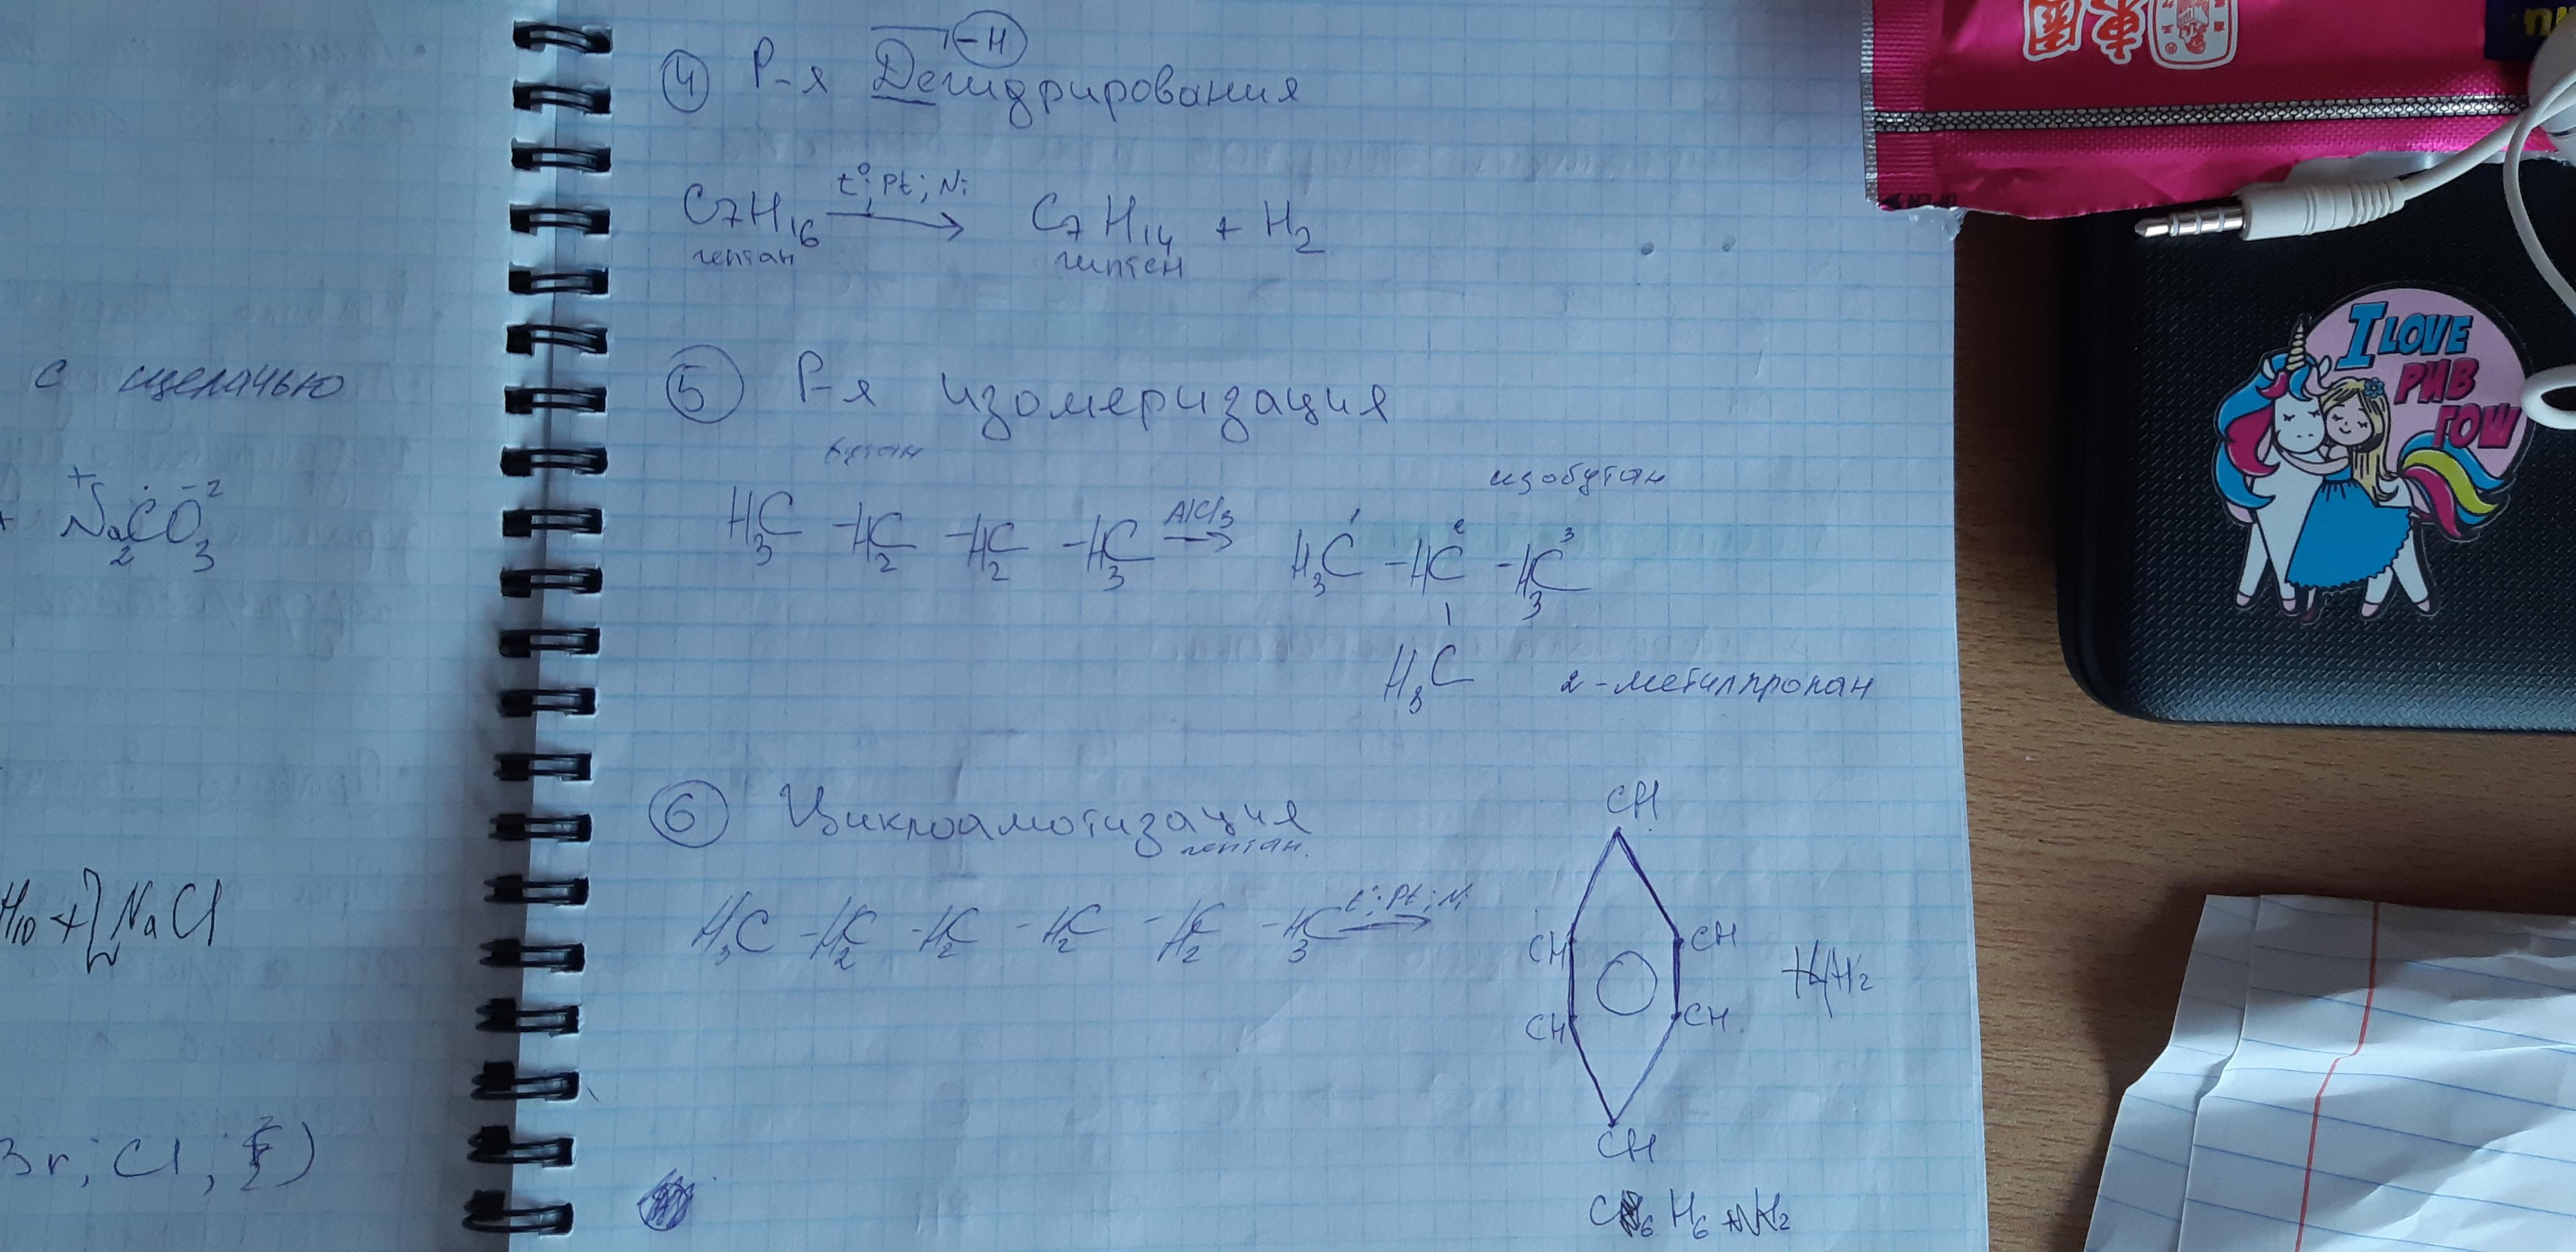 с щелачью
+ Na₂CO₃⁻²
H₁₀ + 2NaCl
Br; Cl;
④ Р-я Дегидрирования
-H
t°; Pt; Ni
C₇H₁₆ → C₇H₁₄ + H₂
гептан гептен
⑤ Р-я изомеризация
бутан изобутан
H₃C -H₂C -H₂C -H₃C AlCl₃ → H₃C -HC -H₃C
1 2 3
H₃C 2-метилпропан
⑥ Циклоамотизация
гептан
H₃C -H₂C -H₂C -H₂C -H₂C -H₃C t°; Pt; Ni →
CH
CH CH +4H₂
CH CH
CH
C₆H₆ +4H₂
東園
I LOVE
РИВ
ГОШ